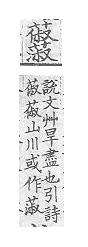 𦸗蔋
說文艸旱盡也引詩
𦸗𦸗山川或作蔋